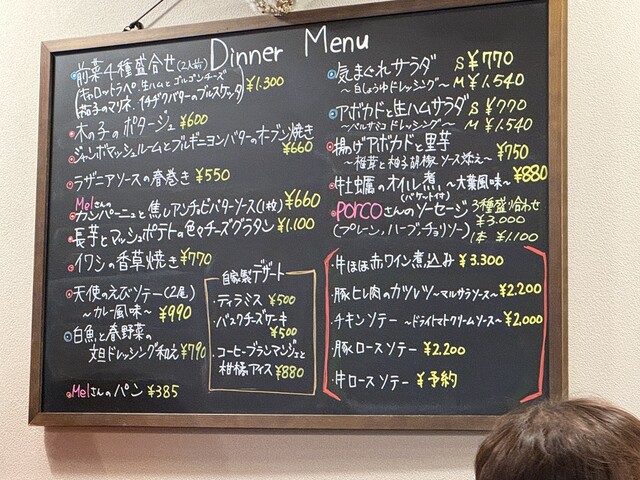 Dinner Menu
前菜4種盛合せ(2人前)
(キャロットラペ、生ハムとゴルゴンチーズ
茄子のマリネ、イチヂクバターのブルスケッタ) ¥1.300
木の子のポタージュ ¥600
ジャンボマッシュルームとブルギニヨンバターのオーブン焼き
¥660
ラザニアソースの春巻き ¥550
Melさんの
カンパーニュと焦しアンチョビバターソース(1枚) ¥660
長芋とマッシュポテトの色々チーズグラタン ¥1.100
イワシの香草焼き ¥770
天使のえびソテー(2尾)
~カレー風味~ ¥990
白魚と春野菜の
大旦ドレッシング和え ¥790
Melさんのパン ¥385
自家製デザート
・ティラミス ¥500
・バスクチーズケーキ
¥500
・コーヒーブランマンジェと
柑橘アイス ¥880
気まぐれサラダ S ¥770
~白しょうゆドレッシング~ M ¥1.540
アボカドと生ハムサラダ S ¥770
~バルサミコドレッシング~ M ¥1.540
揚げアボカドと里芋 ¥750
~椎茸と柚子胡椒ソース添え~
牡蠣のオイル煮 ~大葉風味~ ¥880
(バケット付)
porcoさんのソーセージ 3種盛り合わせ
¥3.000
(プレーン、ハーブ、チョリソー) 1本 ¥1.100
・牛ほほ赤ワイン煮込み ¥3.300
・豚ヒレ肉のカツレツ ~マルサラソース~ ¥2.200
・チキンソテー ~ドライトマトクリームソース~ ¥2.000
・豚ロースソテー ¥2.200
・牛ロースソテー ¥予約